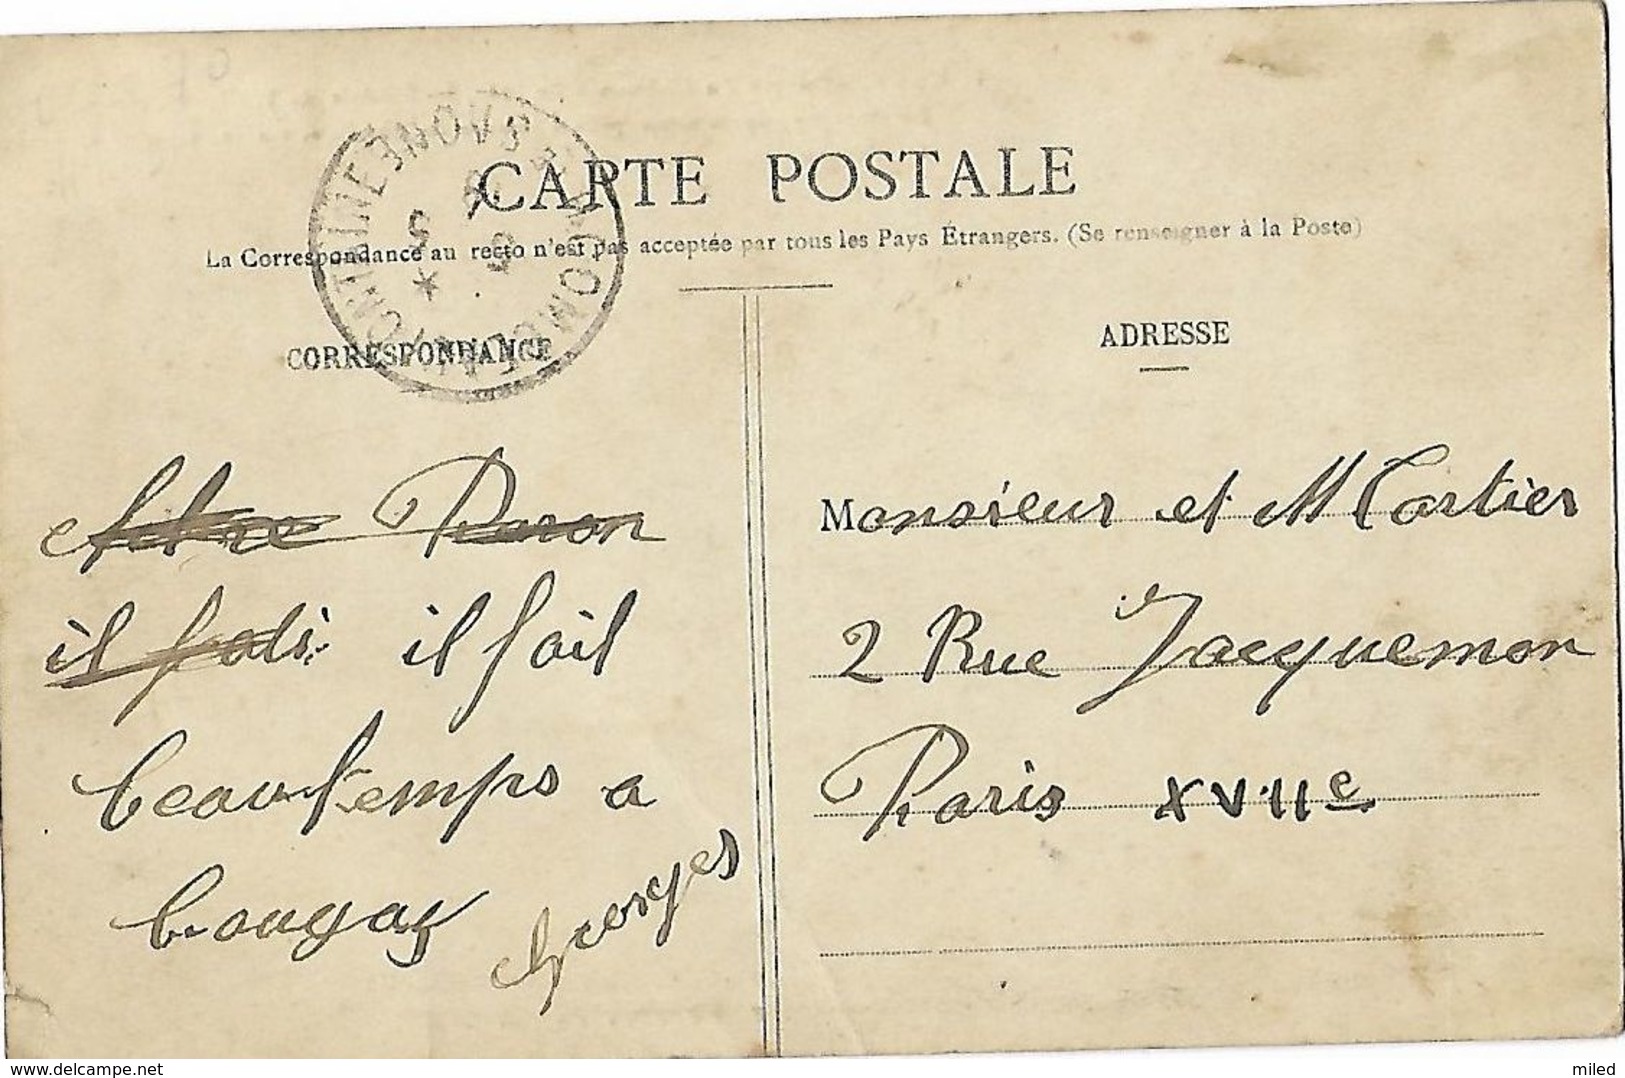 CARTE POSTALE
La Correspondance au recto n'est pas acceptée par tous les Pays Étrangers. (Se renseigner à la Poste)
CORRESPONDANCE
il fait
beau temps a
Georges
ADRESSE
Monsieur et M Cartier
2 Rue Jacquemon
Paris XVIIe
www.delcampe.net
miled